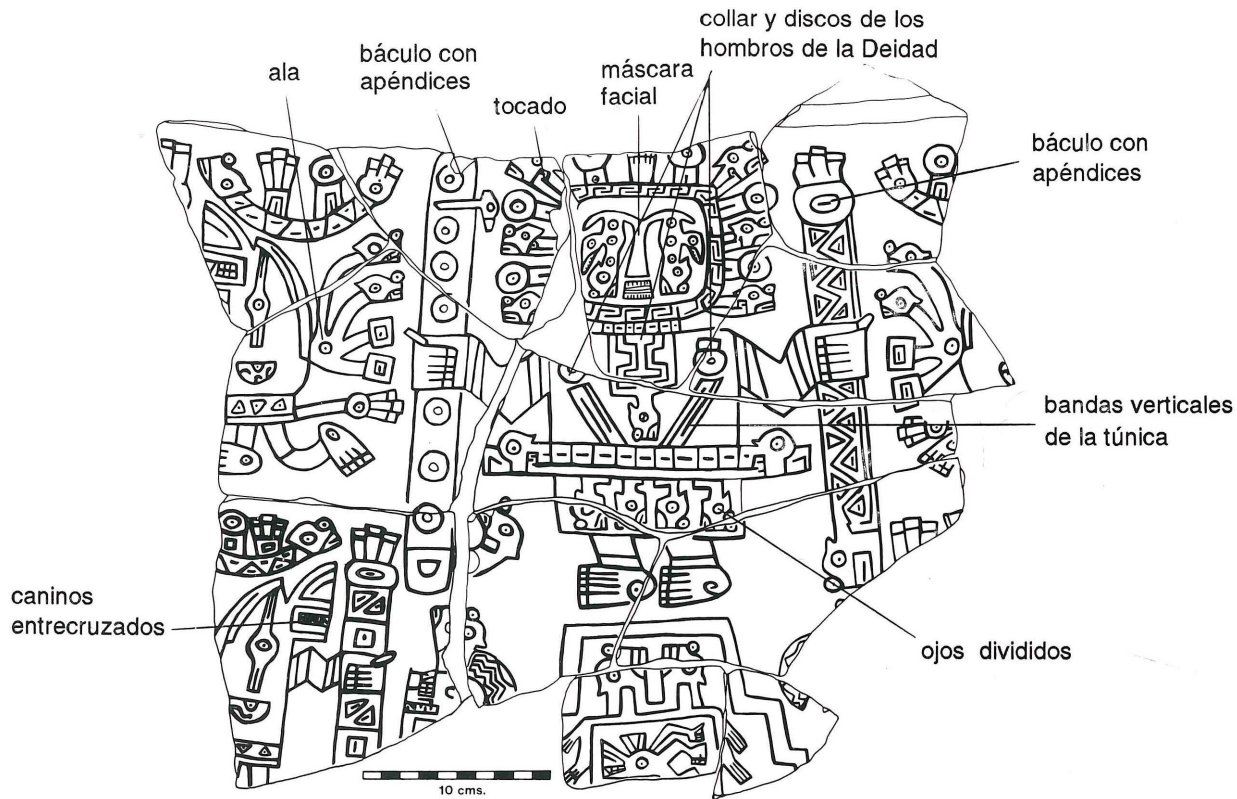 collar y discos de los
hombros de la Deidad
báculo con
apéndices
máscara
facial
ala
tocado
báculo con
apéndices
bandas verticales
de la túnica
caninos
entrecruzados
ojos divididos
10 cms.